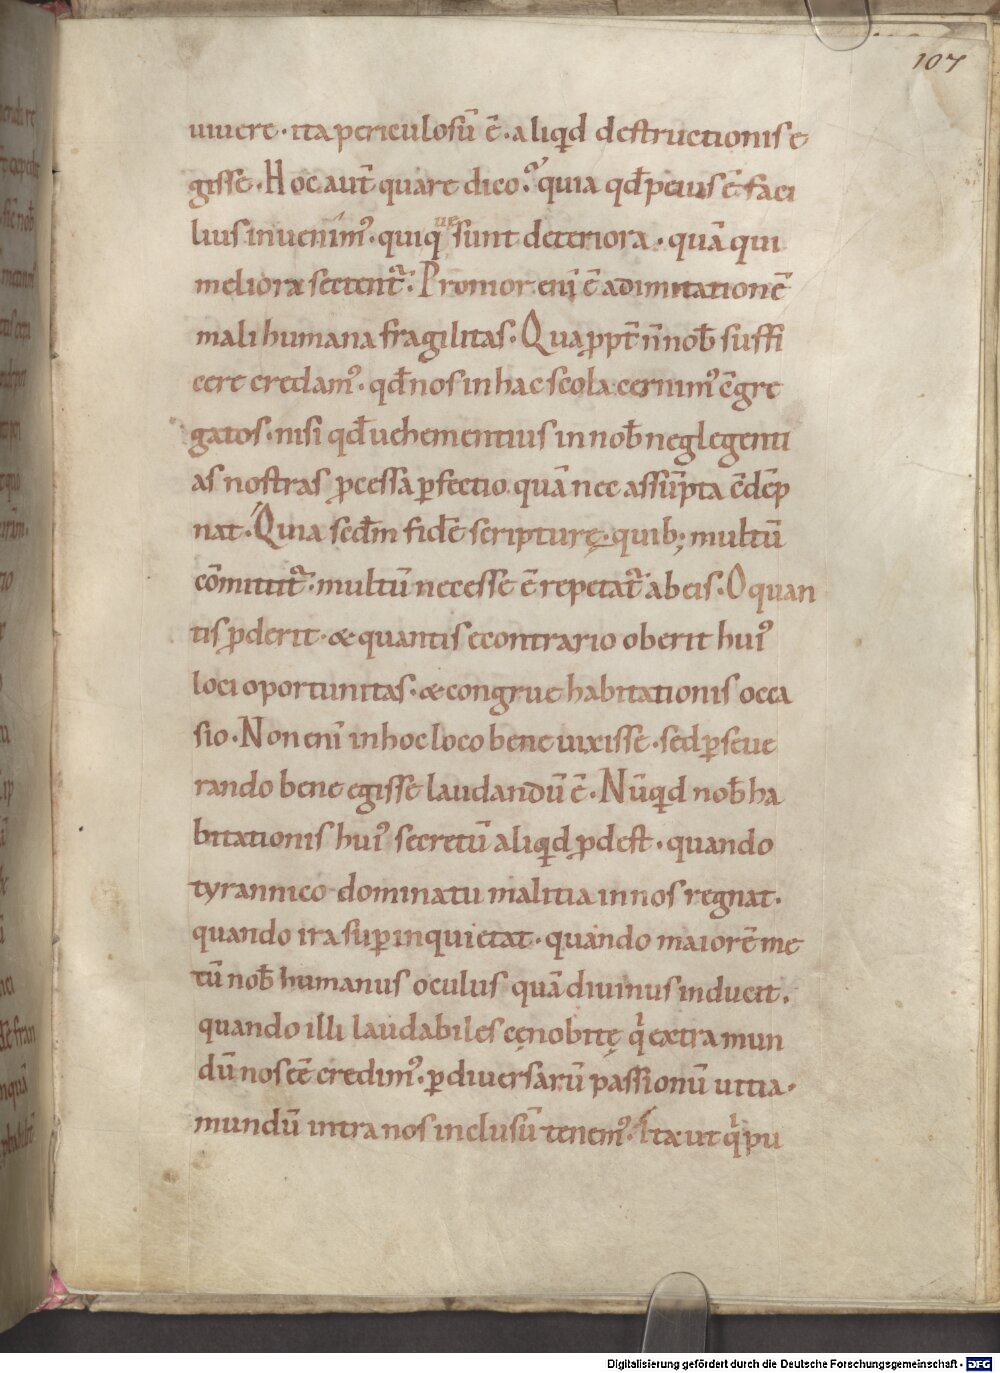 107
uiuere · ita periculosū ē · aliqͥd destructionis e
gisse · Hoc aut̄ quare dico? quia qd̄ peius ē faci
lius inuenim᾽ · quiq ue sunt deteriora · quā qui
meliora sectent᷑. Pronior eni ē ad imitationē
mali humana fragilitas · Quapppt̄ n̄ nob̄ suffi
cere credam᾽ · qd̄ nos in hac scola cernim᾽ c̄gre
gatos · nisi qd̄ uehementius in nob̄ neglegenti
as nostras ꝓcessa ꝑfectio quā nec assūpta c̄dēp
nat · Quia scd̄m fidē scripturę · quib; multū
cōmittit᷑ · multū necesse ē repetat᷑ ab eis · O quan
tis ꝓderit · & quantis econtrario oberit hui᾽
loci oportunitas · & congrue habitationis occa
sio · Non enī in hoc loco bene uixisse · sed ꝑseue
rando bene egisse laudandū ē · Nūqͥd nob̄ ha
bitationis hui᾽ secretū aliqͥd ꝓdest · quando
tyrannico dominatu malitia in nos regnat ·
quando ira suꝑ inquietat · quando maiorē me
tū nob̄ humanus oculus quā diuinus inducit ·
quando illi laudabiles cęnobitę qͥ extra mun
dū nos eē credim᾽ · ꝑ diuersarū passionū uitia ·
mundū intra nos inclusū tenem᾽ · Ita ut qͥ pu
Digitalisierung gefördert durch die Deutsche Forschungsgemeinschaft - DFG